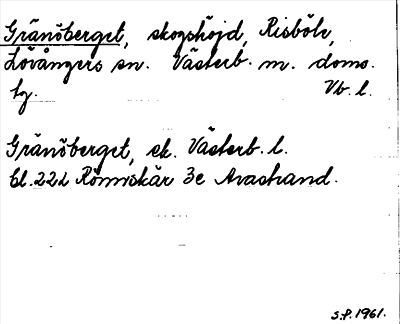 Gränsberget, skogshöjd, Risböle,
Lövångers sn. Västerb. m. doms.
tg. Vb. l.
Gränsberget, ek. Västerb. l.
Bl. 222 Rönnskär 3c Avastrand.
S.P. 1961.